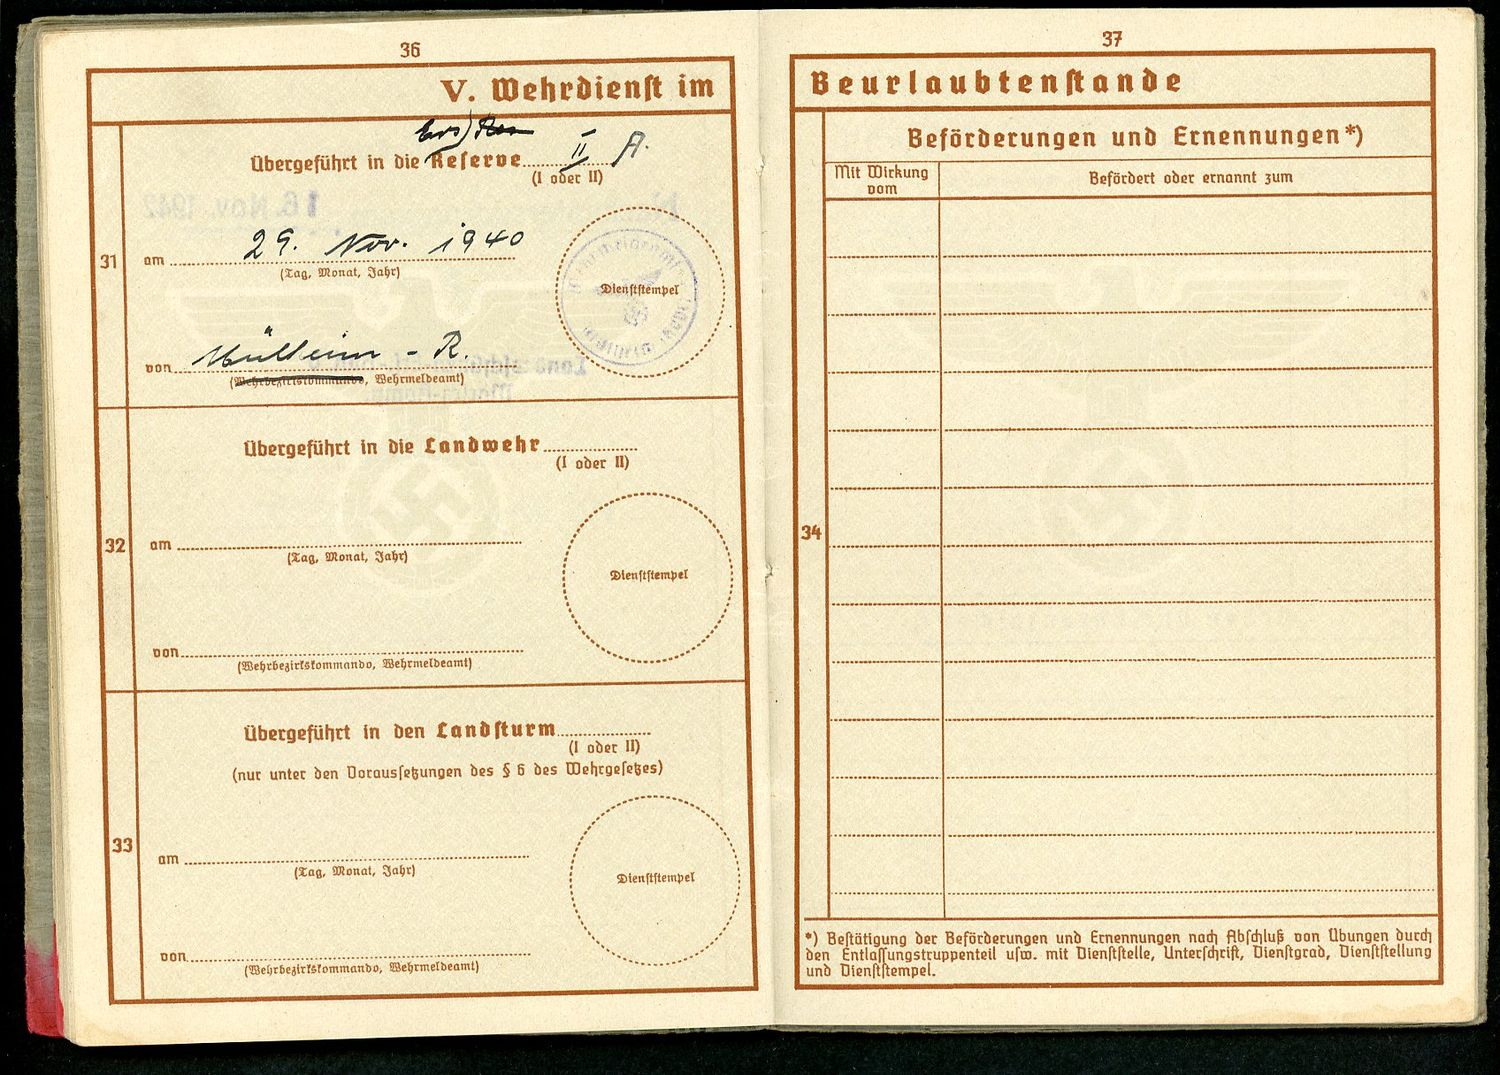 36
V. Wehrdienst im
Übergeführt in die Reserve II A.
(I oder II)
31
am 29. Nov. 1940
(Tag, Monat, Jahr)
Dienststempel
von Mülheim - R.
(Wehrbezirkskommando, Wehrmeldeamt)
Übergeführt in die Landwehr
(I oder II)
32
am
(Tag, Monat, Jahr)
Dienststempel
von
(Wehrbezirkskommando, Wehrmeldeamt)
Übergeführt in den Landsturm
(I oder II)
(nur unter den Voraussetzungen des § 6 des Wehrgesetzes)
33
am
(Tag, Monat, Jahr)
Dienststempel
von
(Wehrbezirkskommando, Wehrmeldeamt)
37
Beurlaubtenstande
Beförderungen und Ernennungen*)
Mit Wirkung
vom
Befördert oder ernannt zum
34
*) Bestätigung der Beförderungen und Ernennungen nach Abschluß von Übungen durch
den Entlassungstruppenteil usw. mit Dienststelle, Unterschrift, Dienstgrad, Dienststellung
und Dienststempel.